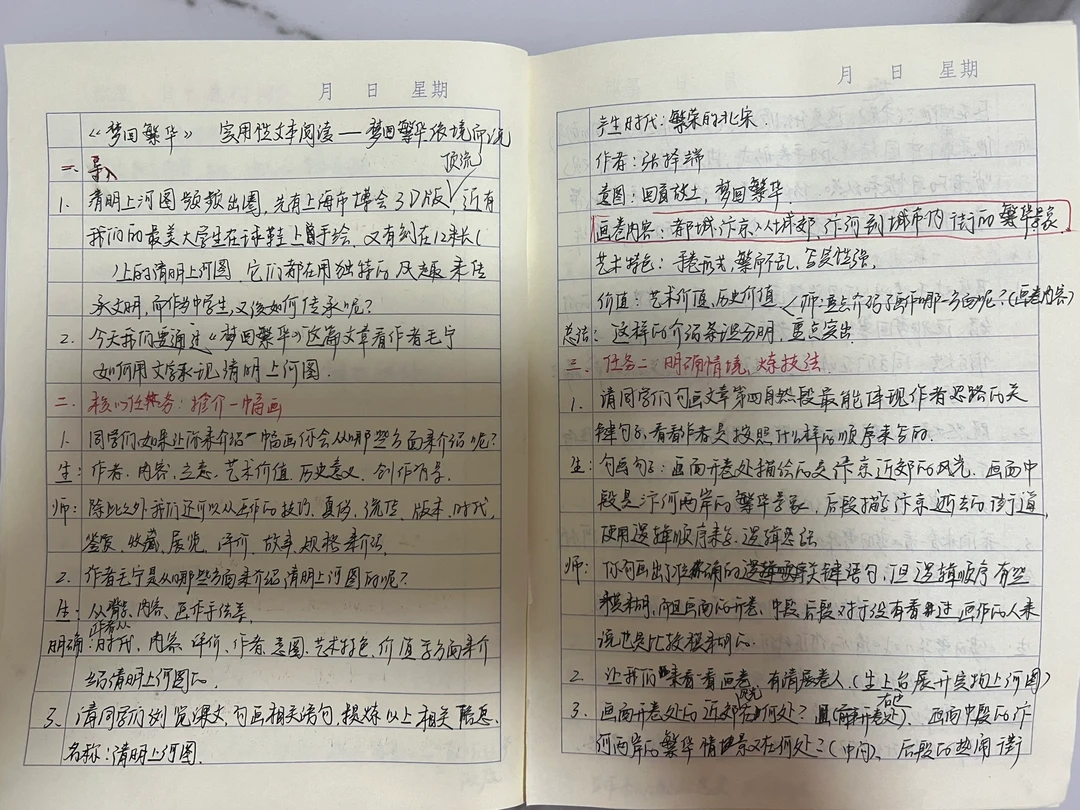 月 日 星期
《梦回繁华》 实用性文本阅读—梦回繁华依境而说
一、导入
顶流
1. 清明上河图频频出圈,先有上海市博会3D版,近有
我们的最美大学生在球鞋上手绘,又有刻在12米长(
)上的清明上河图,它们都在用独特的风趣来传
承文明,而作为中学生,又该如何传承呢?
2. 今天我们要通过《梦回繁华》这篇文章看作者毛宁
如何用文字承记清明上河图.
二、核心任务:推介一幅画
1. 同学们如果让你来介绍一幅画你会从哪些方面来介绍呢?
生:作者、内容、立意、艺术价值、历史意义、创作背景.
师:除此之外我们还可以从画作的技巧、真伪、流传、版本、时代、
鉴赏、收藏、展览、评价、故事、规格来介绍.
2. 作者毛宁是从哪些方面来介绍清明上河图的呢?
生:从背景、内容、画作手法等.
作者从
明确:时代、内容、评价、作者、意图、艺术特色、价值等方面来介
绍清明上河图的.
3、请同学们浏览课文,勾画相关语句,提炼以上相关信息.
名称:清明上河图.
月 日 星期
产生时代:繁荣的北宋.
作者:张择端
意图:回首故土,梦回繁华.
画卷内容:都城汴京,从城郊、汴河到城市内街的繁华景象.
艺术特色:手卷形式,繁而不乱,写实性强.
价值:艺术价值,历史价值 (师:重点介绍了画作哪一方面呢?(画卷内容)
总结:这样的介绍条理分明,重点突出
三、任务二 明确情境,炼技法
1. 请同学们勾画文章第四自然段最能体现作者思路的关
键句子,看看作者是按照什么样的顺序来写的.
生:勾画句子:画面开卷处描绘的是汴京近郊的风光,画面中
段是汴河两岸的繁华景象,后段描写汴京逝去的街道,
使用逻辑顺序来写,逻辑思路
师:你勾画出了准确的关键语句,但逻辑顺序有些
模糊,而且画面的开卷、中段后段对于没有看过画作的人来
说也是比较模糊的.
2. 让我们来看一看画卷,有请展卷人.(生上台展开实物上河图)
风光 右边
3. 画面开卷处的近郊在何处?(前开卷处),画面中段的汴
河两岸的繁华情景又在何处?(中间)、后段的热闹街